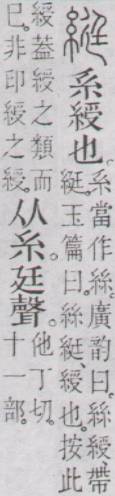 綎
系綬也。
系當作絲。廣韵曰。絲綬帶
綎。玉篇曰。絲綎、綬也。按此
綬蓋綬之類而
巳。非印綬之綬。
从糸。廷聲。
他丁切。
十一部。